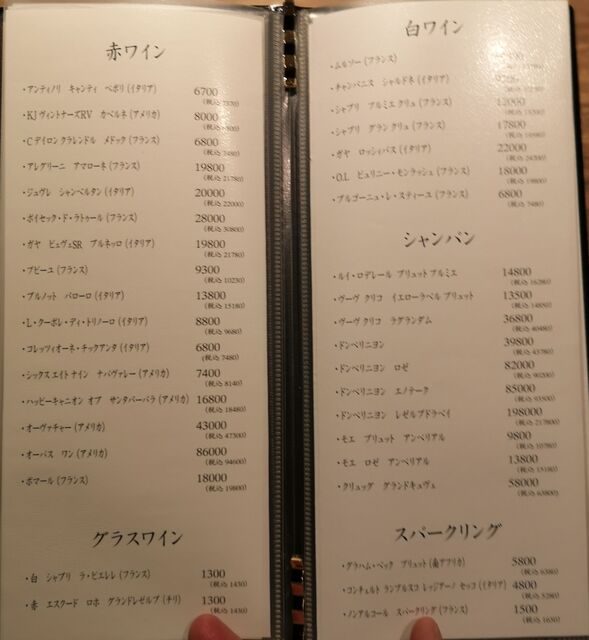 赤ワイン
・アンティノリ キャンティ ペポリ (イタリア) 6700
(税込 7370)
・KJ ヴィントナーズRV カベルネ (アメリカ) 8000
(税込 8800)
・Cデイロン クラレンドル メドック (フランス) 6800
(税込 7480)
・アレグリーニ アマローネ (フランス) 19800
(税込 21780)
・ジュヴレ シャンベルタン (イタリア) 20000
(税込 22000)
・ボイセック・ド・ラトゥール (フランス) 28000
(税込 30800)
・ガヤ ピュヴェSR ブルネッロ (イタリア) 19800
(税込 21780)
・プピーユ (フランス) 9300
(税込 10230)
・プルノット バローロ (イタリア) 13800
(税込 15180)
・L・クーポレ・ディ・トリノーロ (イタリア) 8800
(税込 9680)
・コレッツィオーネ・チックアンタ (イタリア) 6800
(税込 7480)
・シックス エイト ナイン ナパヴァレー (アメリカ) 7400
(税込 8140)
・ハッピーキャニオン オブ サンタバーバラ (アメリカ) 16800
(税込 18480)
・オーヴァチャー (アメリカ) 43000
(税込 47300)
・オーパス ワン (アメリカ) 86000
(税込 94600)
・ポマール (フランス) 18000
(税込 19800)
グラスワイン
・白 シャブリ ラ・ピエレレ (フランス) 1300
(税込 1430)
・赤 エスクード ロホ グランドレゼルブ (チリ) 1300
(税込 1430)
白ワイン
・ムルソー (フランス)
・チャンパニス シャルドネ (イタリア)
・シャブリ プルミエ クリュ (フランス) 12000
(税込 13200)
・シャブリ グラン クリュ (フランス) 17800
(税込 19580)
・ガヤ ロッシィバス (イタリア) 22000
(税込 24200)
・O.L ピュリニー・モンラッシェ (フランス) 18000
(税込 19800)
・ブルゴーニュ・レ・スティーユ (フランス) 6800
(税込 7480)
シャンパン
・ルイ・ロデレール ブリュット プルミエ 14800
(税込 16280)
・ヴーヴ クリコ イエローラベル ブリュット 13500
(税込 14850)
・ヴーヴ クリコ ラグランダム 36800
(税込 40480)
・ドンペリニヨン 39800
(税込 43780)
・ドンペリニヨン ロゼ 82000
(税込 90200)
・ドンペリニヨン エノテーク 85000
(税込 93500)
・ドンペリニヨン レゼルブドラベイ 198000
(税込 217800)
・モエ ブリュット アンペリアル 9800
(税込 10780)
・モエ ロゼ アンペリアル 13800
(税込 15180)
・クリュッグ グランドキュヴェ 58000
(税込 63800)
スパークリング
・グラハム・ベック ブリュット (南アフリカ) 5800
(税込 6380)
・コンチェルト ランブルスコ レッジアーノ セッコ (イタリア) 4800
(税込 5280)
・ノンアルコール スパークリング (フランス) 1500
(税込 1650)